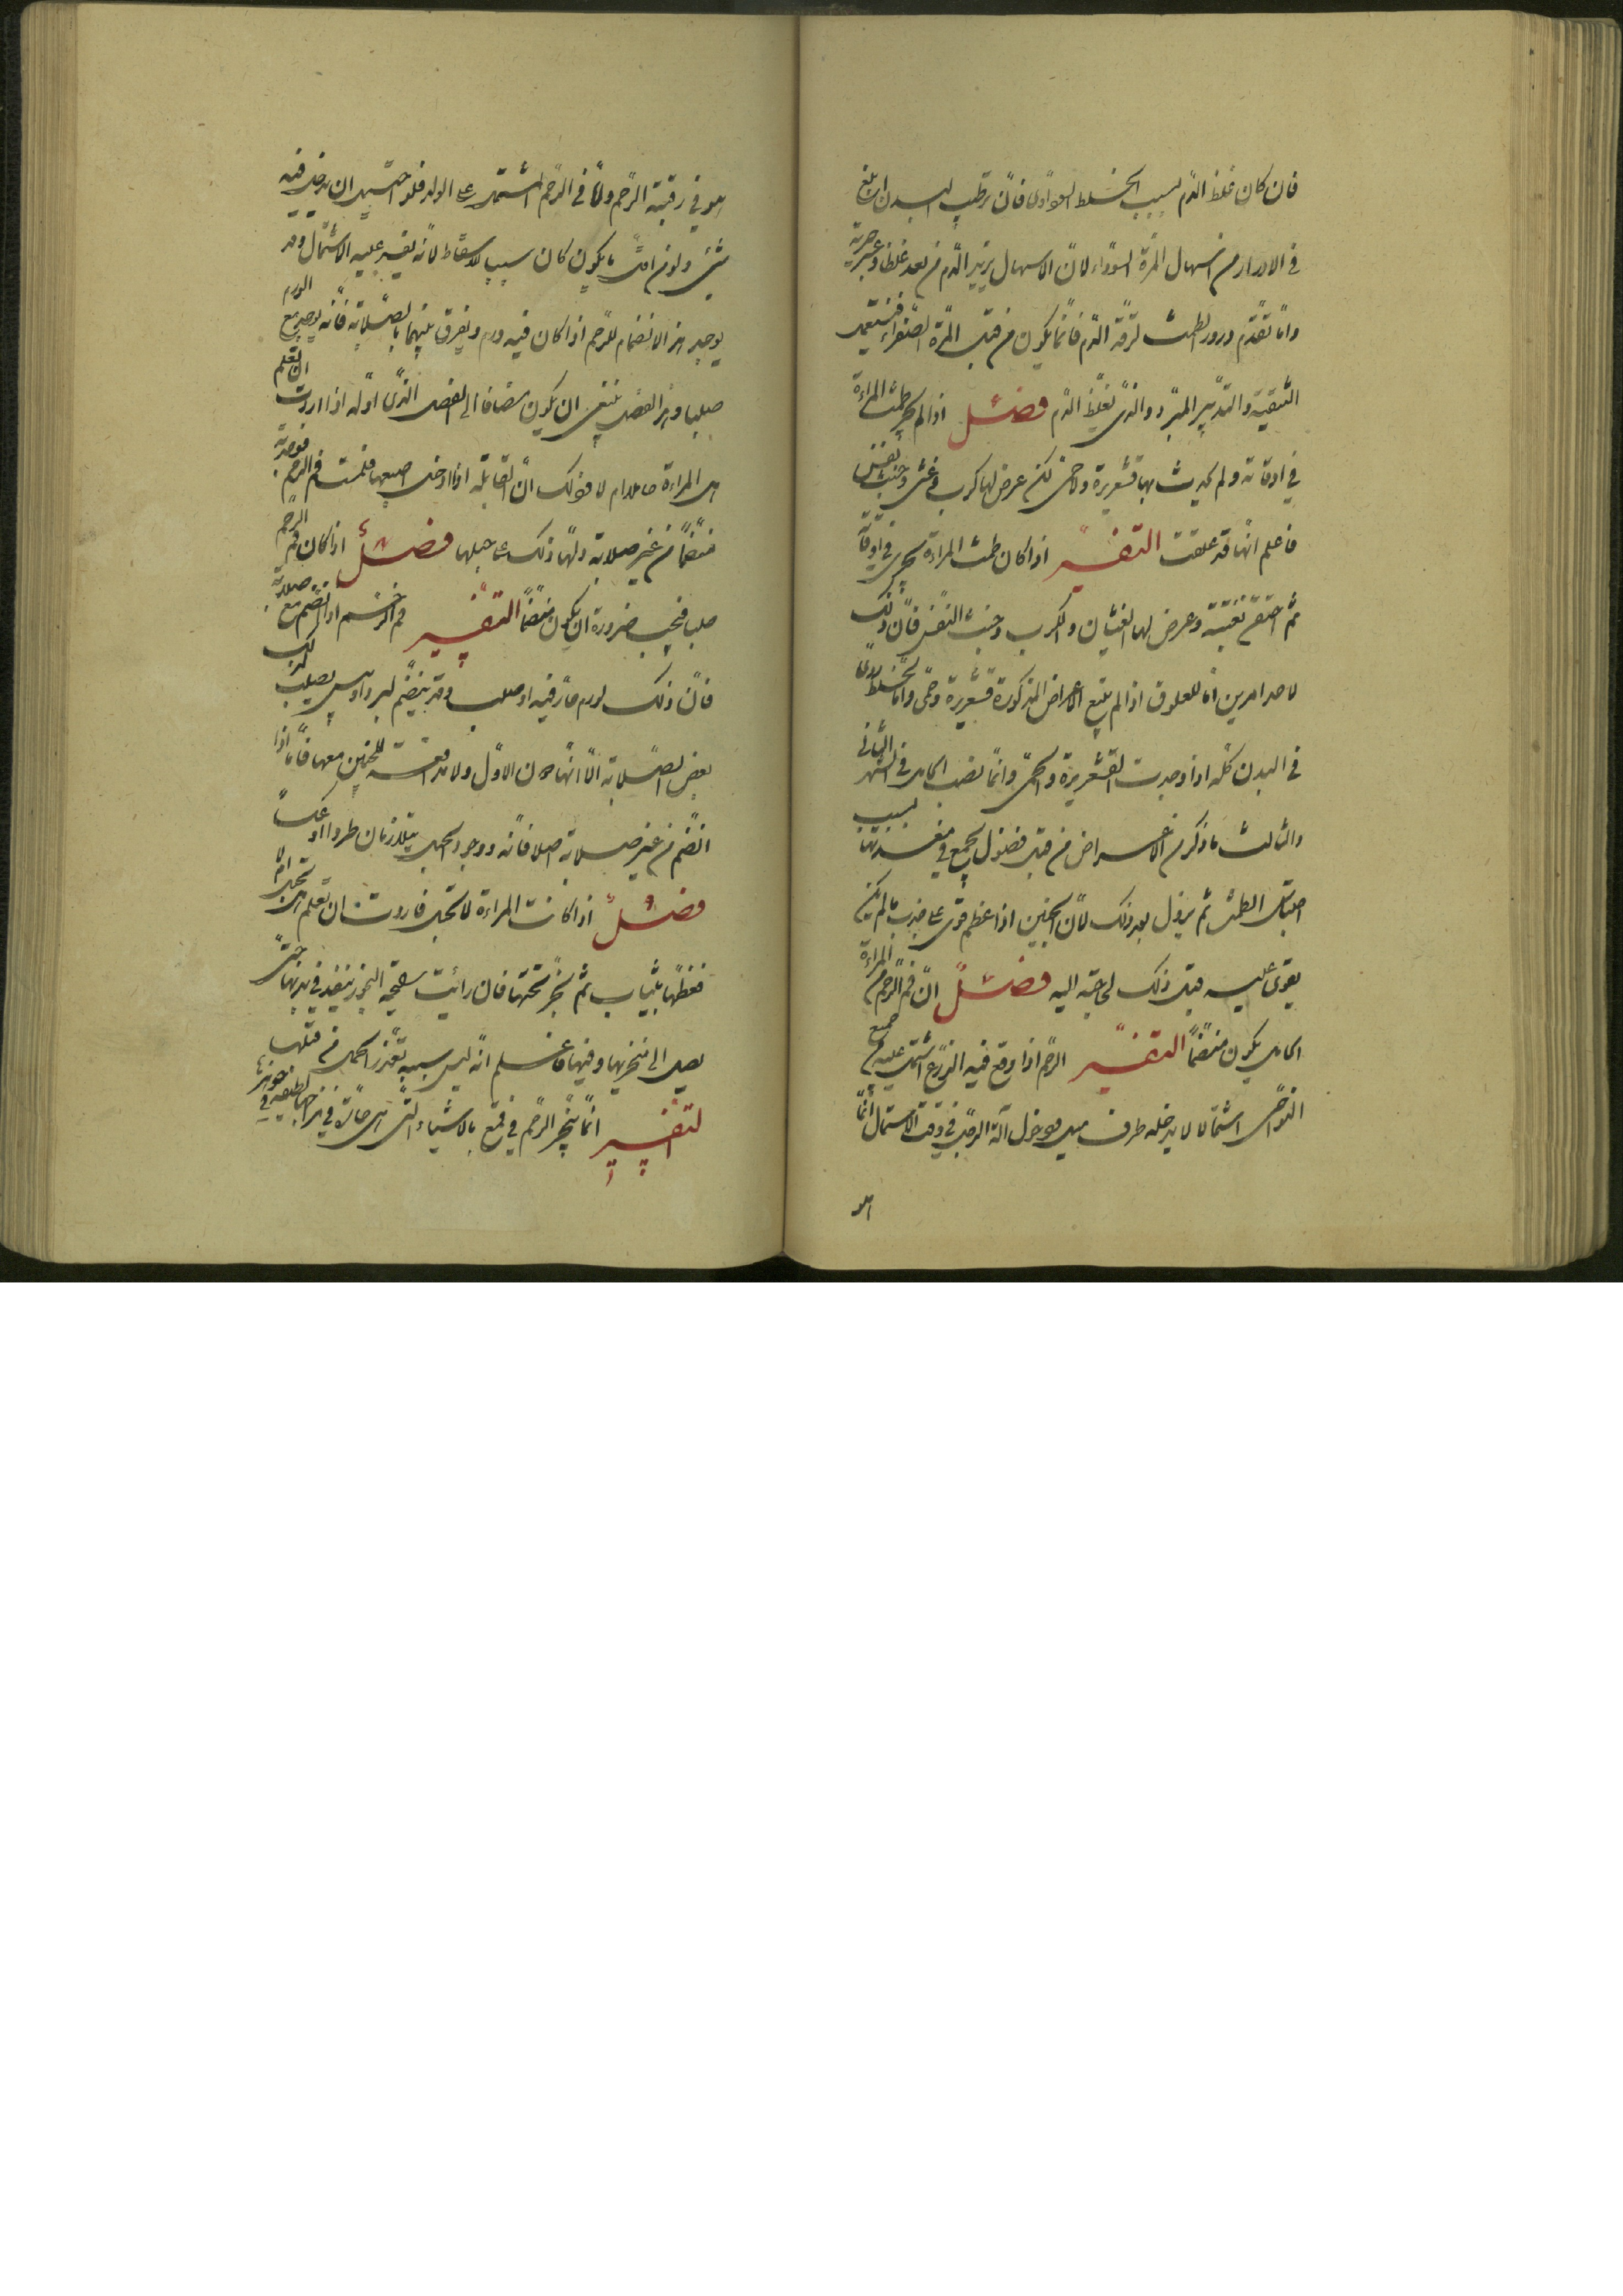 فان كان غلظ الدّم بسبب الخلط السوداوى فانّ ترطيب البدن ابلغ
فى الادرار من اسهال المرّة السّوداء لانّ الاسهال يزيد الدّم من بعد غلظا وعسر جرية
وامّا تقدّم ورود الطمث لرقّة الدّم فانّما يكون من قبل المرّة الصّفراء فتستعمل
التنقية والتدبير المبرّد والذى يغلّظ الدّم فصل اذا لم يجر طمث المراة
فى اوقاته ولم يحدث بها قشعريرة ولا حمى لكن عرض لها كرب وغثى وخبث نفس
فاعلم انّها قد علقت التفسير اذا كان طمث المراة يجرى فى اوقاته
ثم احتقن بغتة وعرض لها الغثيان والكرب وخبث النّفس فانّ ذلك
لاحد امرين امّا للعلوق اذا لم يتبع الاعراض المذكورة قشعريرة وحمى وامّا لخلط ردىّ
فى البدن كلّه اذا وجدت القشعريرة والحمىّ وانّما تصيب الحامل فى الشهر الثانى
والثالث ما ذكر من الاعراض من قبل فضول تجمع فى معدتها بسبب
احتباس الطمث ثم يزول بعد ذلك لانّ الجنين اذا عظم قوى على جذب ما لم يكن
يقوى عليه قبل ذلك لحاجته اليه فصل انّ فم الرّحم من المراة
الحامل يكون منضمّا التفسير الرّحم اذا وقع فيه الزّرع اشتمل عليه من جميع
النواحى اشتمالا لا يدخله طرف ميل ودخول آلة الرجل فى وقت الاشتمال انّما
هو
هو فى رقبة الرّحم ولا فى الرّحم المشتمل على الولد فلو احتيل ان يدخل فيه
شئ ولو من ادقّ ما يكون كان سبب للاسقاط لانّه يفسد عليه الاشتمال وقد
يوجد هذا الانضمام للرّحم اذا كان فيه ورم ويفرق بينهما بالصّلابة فانّه يوجد مع الورم
صلبا وهذا الفصل ينبغى ان يكون مضافا الى الفصل الذّى اوّله اذا اردت ان تعلم
هل المراة حامل ام لا وذلك انّ القابلة اذا ادخلت اصبعها فلمست فم الرحم فوجدته
منضمّا من غير صلابة دلّها ذلك على حبلها فصل اذا كان فم الرحم
صلب فيجب ضرورة ان يكون منضمّا التفسير فم الرحم اذا انضم مع صلابة
فانّ ذلك لورم حارّ فيه او صلب وقد ينضّم لبرد او يبس يصلب لذلك
بعض الصّلابة الّا انّها دون الاوّل ولا مدافعة للجنين معها فامّا اذا
انضّم من غير صلابة اصلا فانّه ووجود الحبل يتلازمان طردا وعكسا
فصل اذا كانت المراة لا تحبل فاردت ان تعلم هل تحبل ام لا
فغطّها بثياب ثم بخّر تحتها فان رايت رائحة البخور ينفذ فى بدنها حتى
يصل الى منخريها وفيها فاعلم انّه ليس سبب تعذّر الحمل من قبلها
التفسير انّما تبخّر الرّحم فى قمع بالاشياء التى هى حارّة فى مزاجها لطيفة فى جوهرها